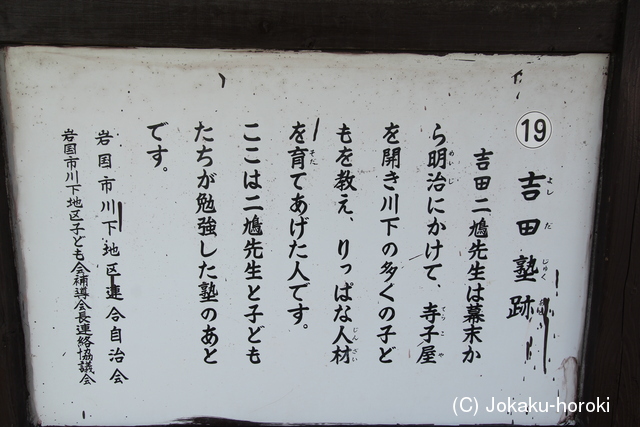 ⑲
吉田塾跡
吉田二鳩先生は幕末か
ら明治にかけて、寺子屋
を開き川下の多くの子ど
もを教え、りっぱな人材
を育てあげた人です。
ここは二鳩先生と子ども
たちが勉強した塾のあと
です。
岩国市川下地区連合自治会
岩国市川下地区子ども会補導会長連絡協議会
(C) Jokaku-horoki